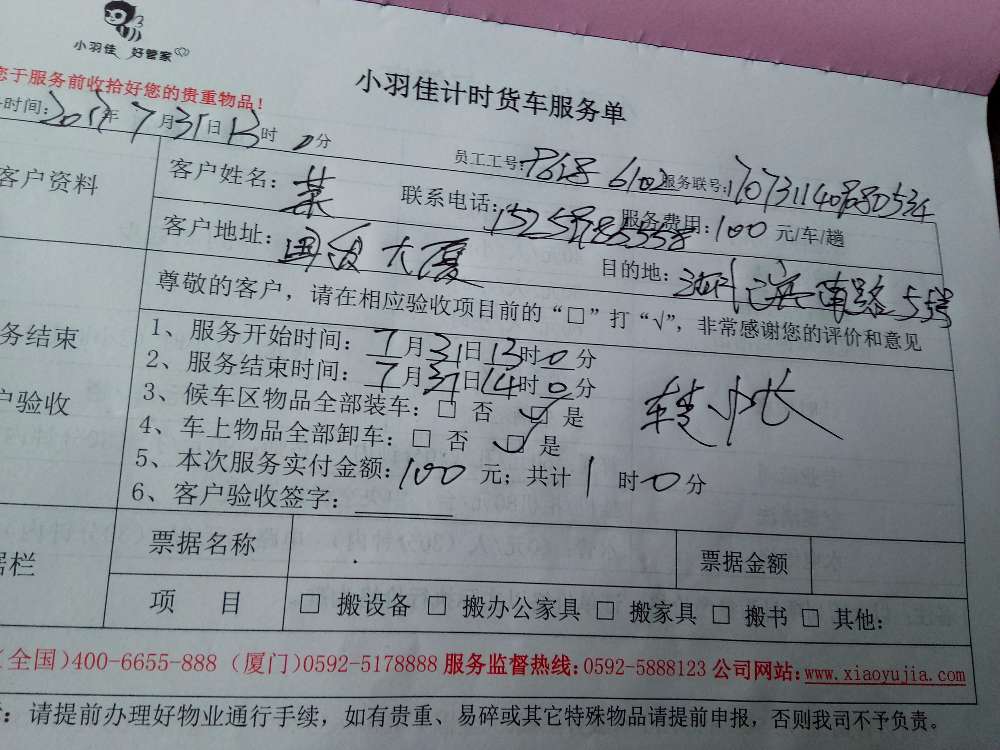 小羽佳 好管家
您于服务前收拾好您的贵重物品！
小羽佳计时货车服务单
时间：2017年7月31日13时0分
员工工号： 6102 服务联号：
客户资料
客户姓名：叶 联系电话： 服务费用：100元/车/趟
客户地址：国贸大厦 目的地： 南路55号
尊敬的客户，请在相应验收项目前的“□”打“√”，非常感谢您的评价和意见
务结束
户验收
1、服务开始时间：7月31日13时0分
2、服务结束时间：7月31日14时0分
3、候车区物品全部装车：□ 否 ☑ 是
4、车上物品全部卸车：□ 否 ☑ 是
5、本次服务实付金额：100元；共计1时0分
6、客户验收签字：
据栏
票据名称 票据金额
项 目 □ 搬设备 □ 搬办公家具 □ 搬家具 □ 搬书 □ 其他：
（全国）400-6655-888（厦门）0592-5178888 服务监督热线：0592-5888123 公司网站：www.xiaoyujia.com
：请提前办理好物业通行手续，如有贵重、易碎或其它特殊物品请提前申报，否则我司不予负责。